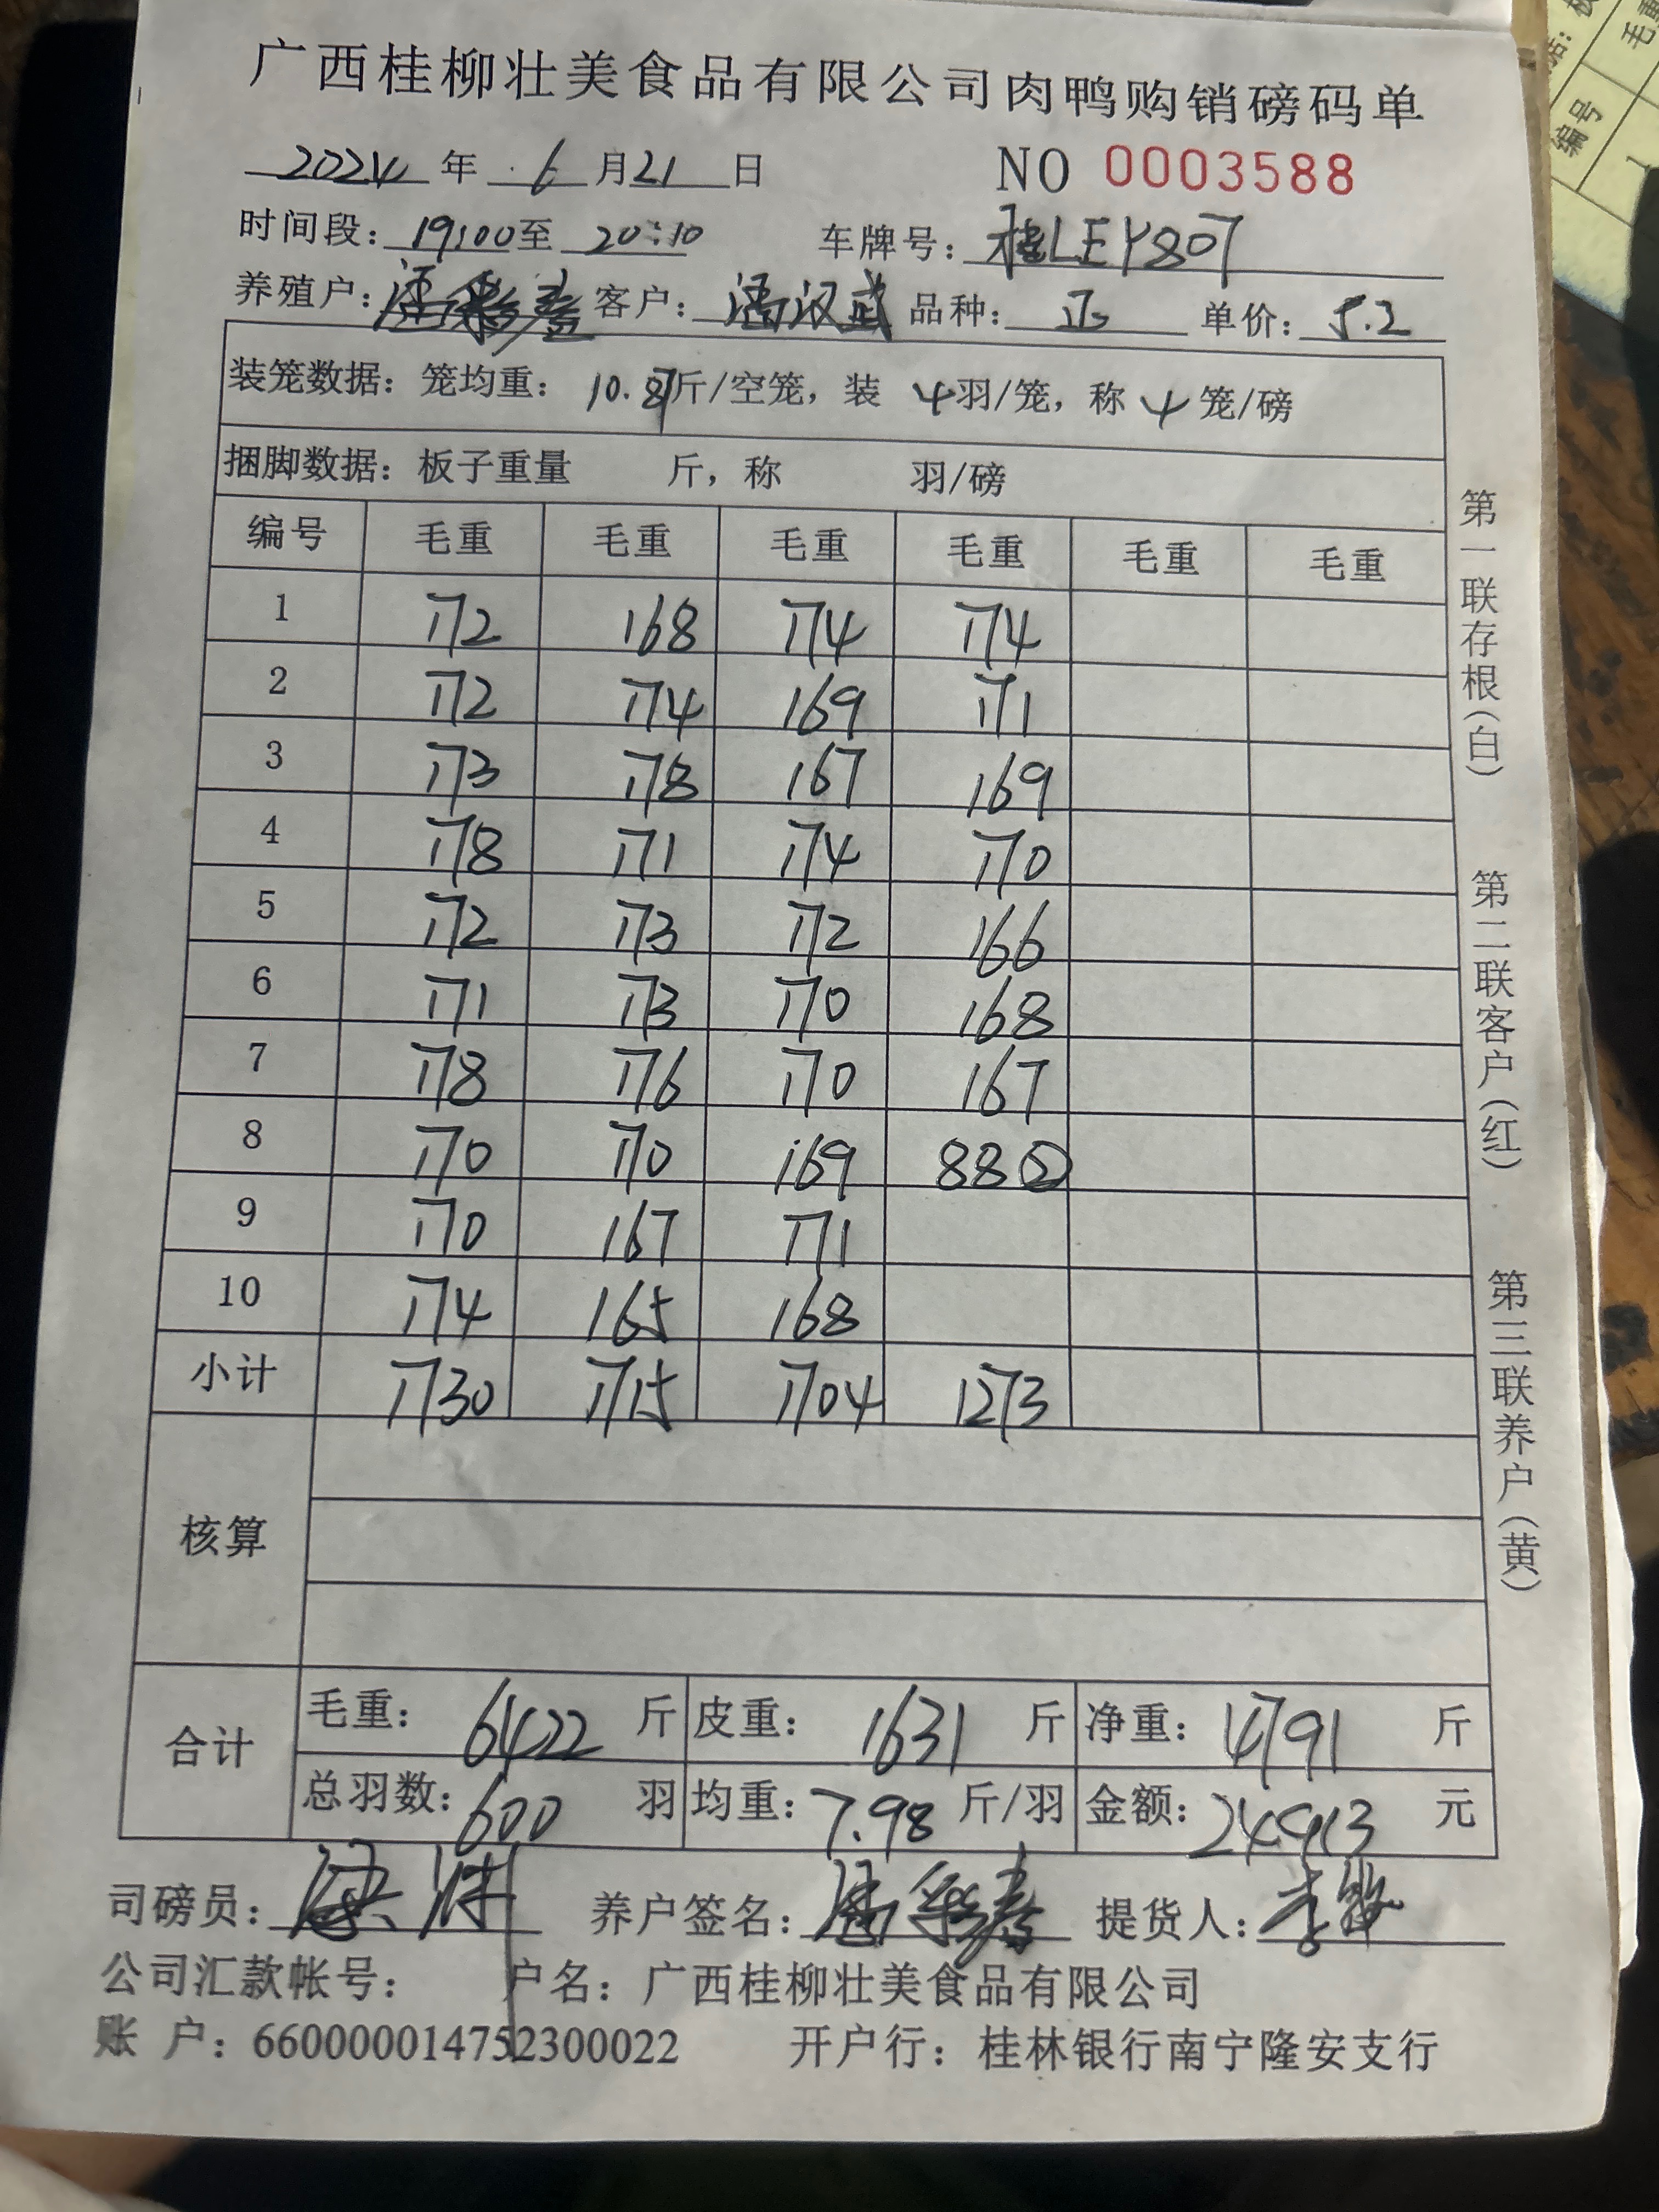 广西桂柳壮美食品有限公司肉鸭购销磅码单
2024 年 6 月 21 日 NO 0003588
时间段: 19:00 至 20:10 车牌号: 桂LEY807
养殖户: 客户: 潘汉武 品种: 单价: 5.2
装笼数据: 笼均重: 10.87 斤/空笼, 装 4 羽/笼, 称 4 笼/磅
捆脚数据: 板子重量 斤, 称 羽/磅
编号 毛重 毛重 毛重 毛重 毛重 毛重
1 172 168 174 174
2 172 174 169 171
3 173 178 167 169
4 178 171 174 170
5 172 173 172 166
6 171 173 170 168
7 178 176 170 167
8 170 170 169 88②
9 170 167 171
10 174 165 168
小计 1730 1715 1704 1273
核算
合计 毛重: 6422 斤 皮重: 1631 斤 净重: 4791 斤
总羽数: 600 羽 均重: 7.98 斤/羽 金额: 24913 元
司磅员: 养户签名: 提货人:
公司汇款帐号: 户名: 广西桂柳壮美食品有限公司
账 户: 660000014752300022 开户行: 桂林银行南宁隆安支行
第一联存根(白) 第二联客户(红) 第三联养户(黄)
编号
毛重
1